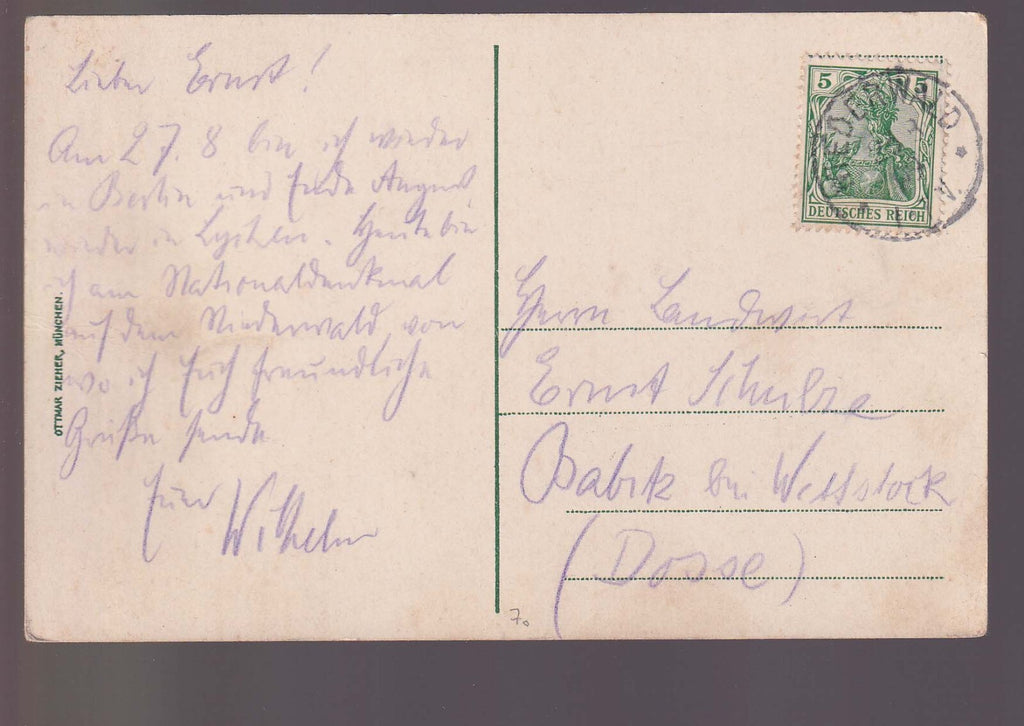 Lieber Ernst!
Am 27. 8 bin ich wieder
in Berlin und Ende August
wieder in Lychen. Heute bin
ich am Nationaldenkmal
auf dem Niederwald von
wo ich Euch freundliche
Grüße sende
Euer
Wilhelm
OTTMAR ZIEHER, MÜNCHEN.
5 5
DEUTSCHES REICH
NIEDERWALD
Herrn Landwirt
Ernst Schulze
Babitz bei Wittstock
(Dosse)
7.